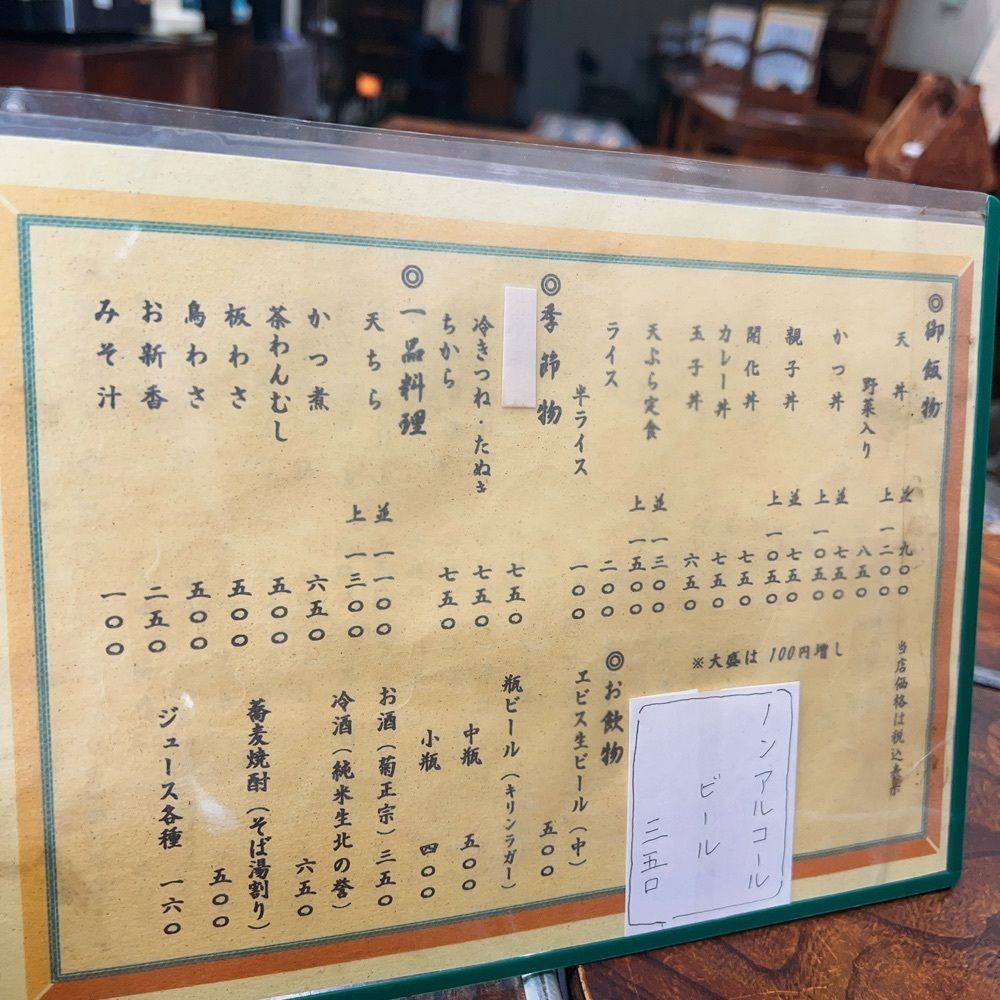 ◎御飯物
天丼 並 九〇〇
上 一二〇〇
野菜入り 八五〇
かつ丼 並 七五〇
上 一〇五〇
親子丼 並 七五〇
上 一〇五〇
開化丼 七五〇
カレー丼 七五〇
玉子丼 六五〇
天ぷら定食 並 一三〇〇
上 一五〇〇
ライス 二〇〇
半ライス 一〇〇
◎季節物
七五〇
冷きつね・たぬき 七五〇
ちから 七五〇
◎一品料理
天ちら 並 一一〇〇
上 一三〇〇
かつ煮 六五〇
茶わんむし 五〇〇
板わさ 五〇〇
鳥わさ 五〇〇
お新香 二五〇
みそ汁 一〇〇
当店価格は税込
※大盛は100円増し
ノンアルコール
ビール
三五〇
◎お飲物
ヱビス生ビール(中)
五〇〇
瓶ビール(キリンラガー)
中瓶 五〇〇
小瓶 四〇〇
お酒(菊正宗)三五〇
冷酒(純米生北の誉)
六五〇
蕎麦焼酎(そば湯割り)
五〇〇
ジュース各種 一六〇